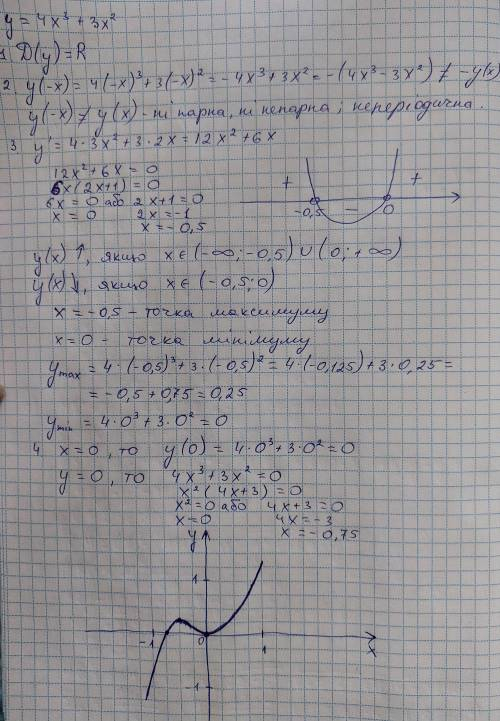 y = 4x³ + 3x²
1. D(y) = R
2. y(-x) = 4(-x)³ + 3(-x)² = -4x³ + 3x² = -(4x³ - 3x²) ≠ -y(x)
y(-x) ≠ y(x) - ні парна, ні непарна; неперіодична.
3. y' = 4·3x² + 3·2x = 12x² + 6x
12x² + 6x = 0
6x(2x+1) = 0
6x = 0 або 2x+1 = 0
x = 0 2x = -1
x = -0,5
+ - +
-0,5 0
y(x) ↑, якщо x ∈ (-∞; -0,5) ∪ (0; +∞)
y(x) ↓, якщо x ∈ (-0,5; 0)
x = -0,5 - точка максимуму
x = 0 - точка мінімуму
y max = 4·(-0,5)³ + 3·(-0,5)² = 4·(-0,125) + 3·0,25 =
= -0,5 + 0,75 = 0,25
y min = 4·0³ + 3·0² = 0
4. x = 0, то y(0) = 4·0³ + 3·0² = 0
y = 0, то 4x³ + 3x² = 0
x²(4x+3) = 0
x² = 0 або 4x+3 = 0
x = 0 4x = -3
x = -0,75
y
1
-1 0 1 x
-1